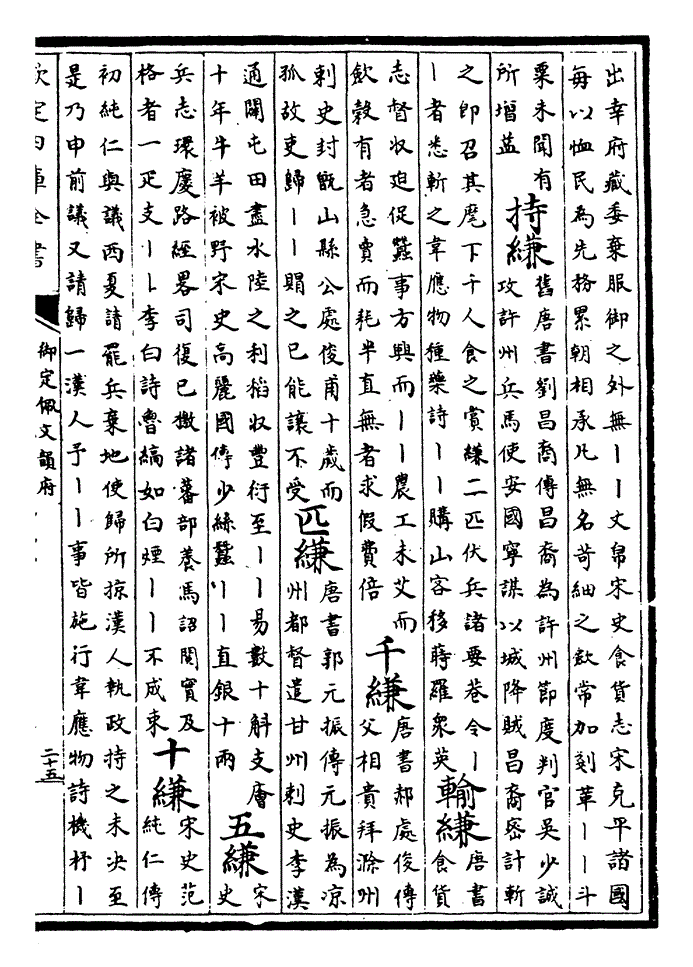 出幸府藏委棄服御之外無丨丨丈帛宋史食貨志宋克平諸國
每以恤民為先務累朝相承凡無名苛細之斂常加刻革丨丨斗
粟未聞有所增益
持縑
舊唐書劉昌裔傳昌裔為許州節度判官吳少誠
攻許州兵馬使安國寧謀以城降賊昌裔密計斬
之即召其麾下千人食之賞縑二匹伏兵諸要巷令丨
丨者悉斬之韋應物種藥詩丨丨購山客移蒔羅衆英
輸縑
唐書
食貨
志督収迫促蠶事方興而丨丨農工未艾而
斂穀有者急賣而耗半直無者求假費倍
千縑
唐書郝處俊傳
父相貴拜滁州
刺史封甑山縣公處俊甫十歲而
孤故吏歸丨丨賵之已能讓不受
匹縑
唐書郭元振傳元振為凉
州都督遣甘州刺史李漢
通闢屯田盡水陸之利稻収豐衍至丨丨易數十斛支廥
十年牛羊被野宋史高麗國傳少絲蠶丨丨直銀十兩
五縑
宋
史
兵志環慶路經畧司復已檄諸蕃部養馬詔閱實及
格者一疋支丨丨李白詩魯縞如白煙丨丨不成束
十縑
宋史范
純仁傳
初純仁與議西夏請罷兵棄地使歸所掠漢人執政持之未决至
是乃申前議又請歸一漢人予丨丨事皆施行韋應物詩機杼丨
欽定四庫全書
御定佩文韻府
二十五